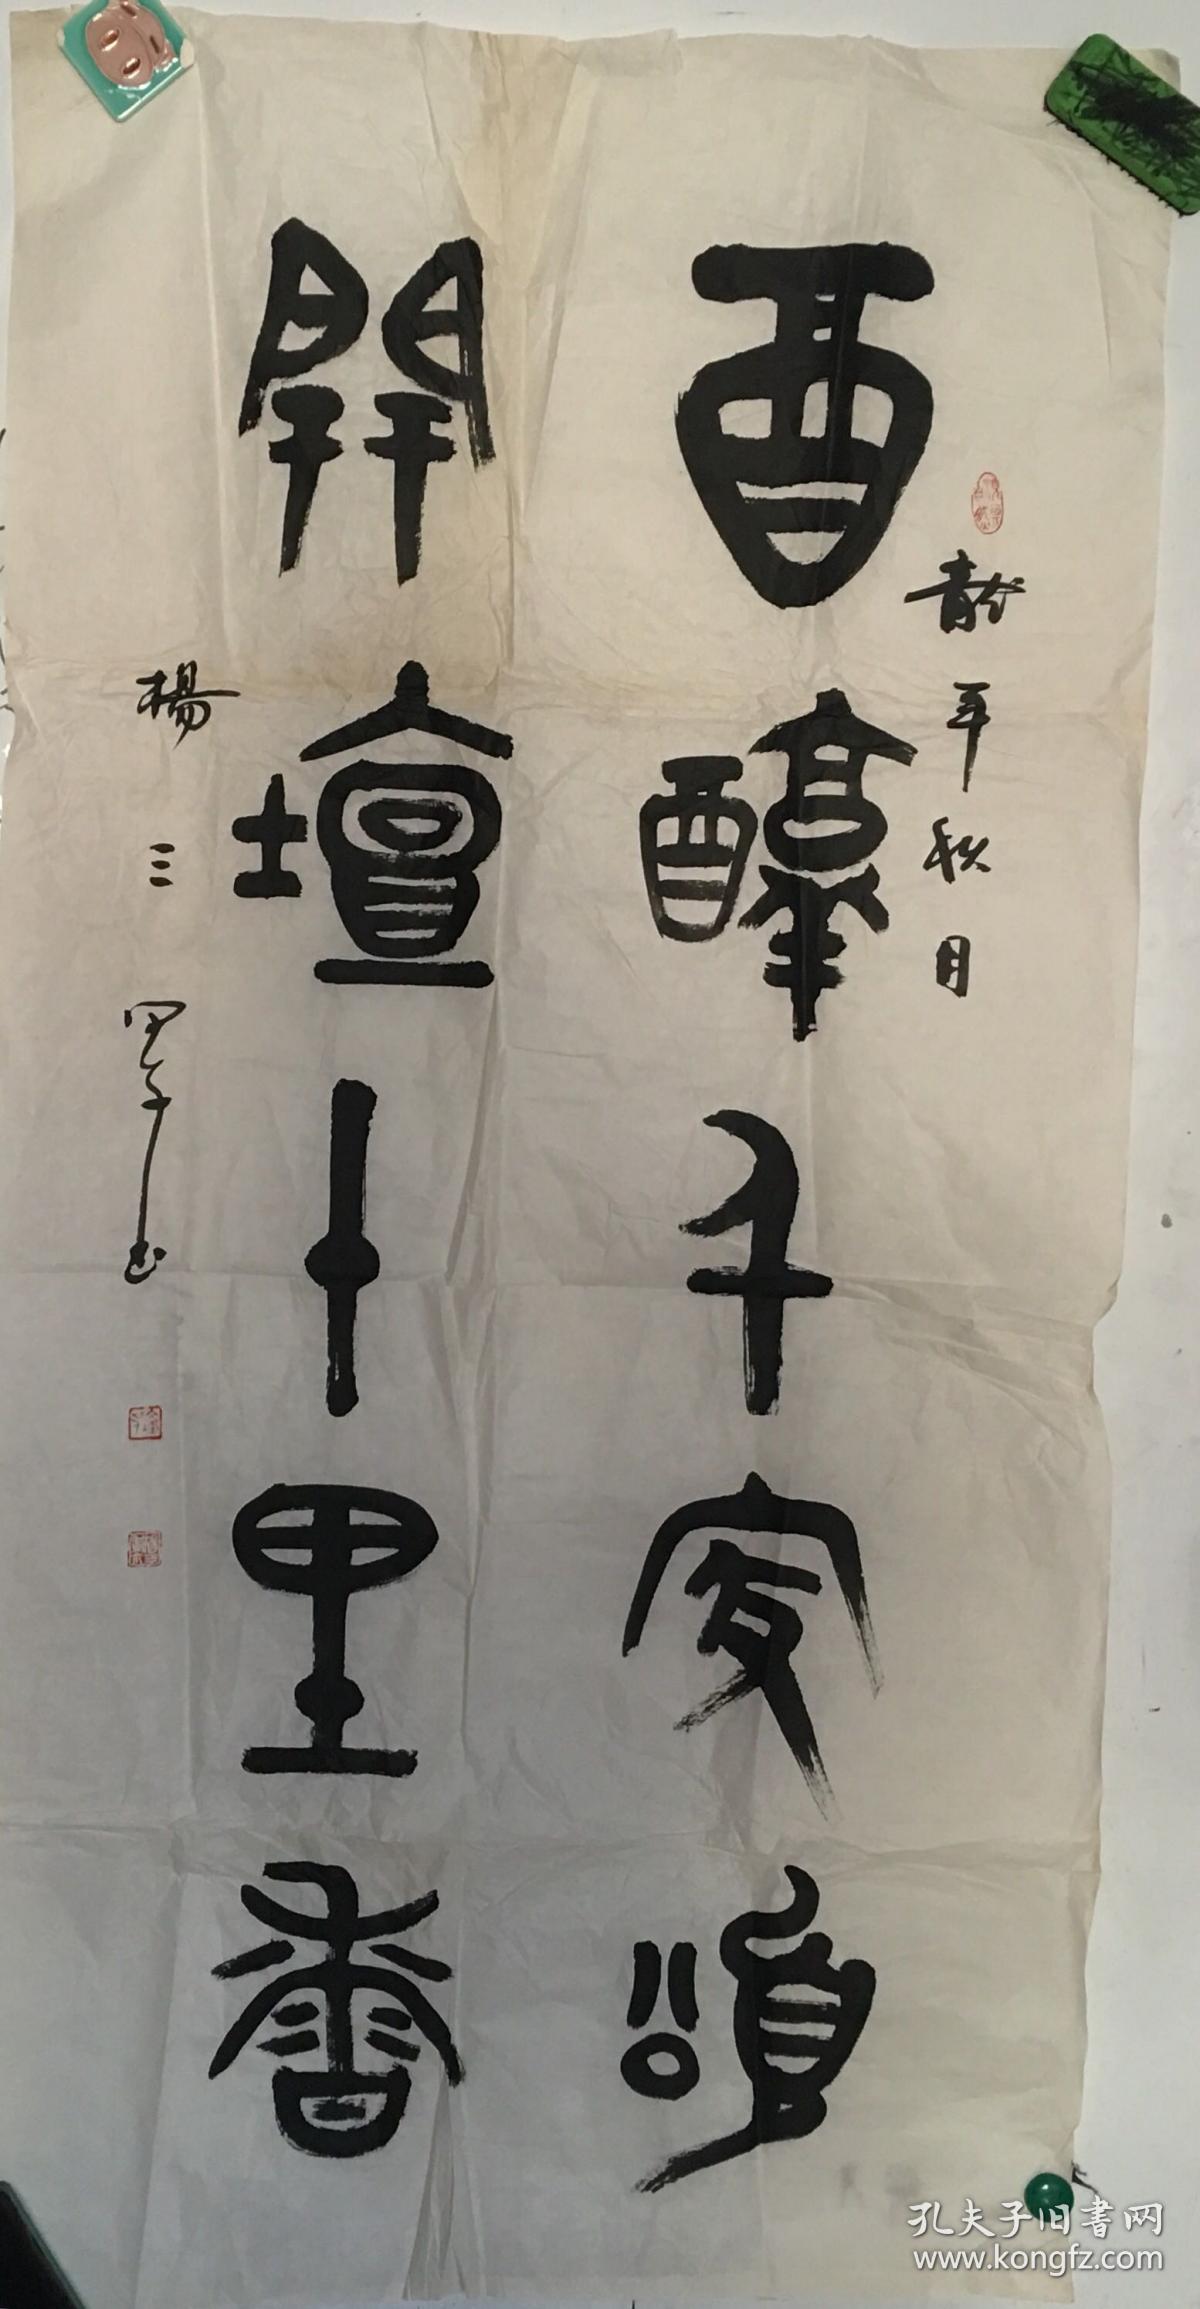 龍年秋月
酉醇千家頌
開壇十里香
楊三
孔夫子旧書网
www.kongfz.com